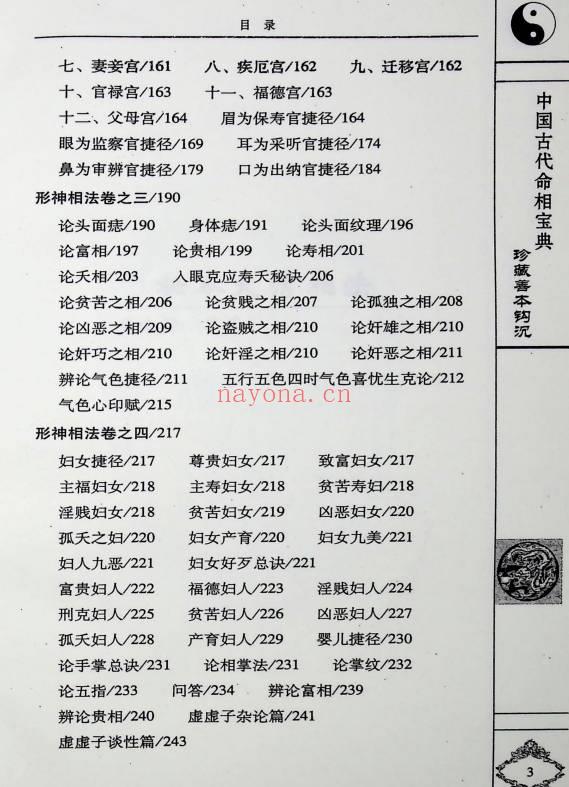 目 录
七、妻妾宫/161 八、疾厄宫/162 九、迁移宫/162
十、官禄宫/163 十一、福德宫/163
十二、父母宫/164 眉为保寿官捷径/164
眼为监察官捷径/169 耳为采听官捷径/174
鼻为审辨官捷径/179 口为出纳官捷径/184
形神相法卷之三/190
论头面痣/190 身体痣/191 论头面纹理/196
论富相/197 论贵相/199 论寿相/201
论夭相/203 人眼克应寿夭秘诀/206
论贫苦之相/206 论贫贱之相/207 论孤独之相/208
论凶恶之相/209 论盗贼之相/210 论奸雄之相/210
论奸巧之相/210 论奸淫之相/210 论奸恶之相/211
辨论气色捷径/211 五行五色四时气色喜忧生克论/212
气色心印赋/215
形神相法卷之四/217
妇女捷径/217 尊贵妇女/217 致富妇女/217
主福妇女/218 主寿妇女/218 贫苦寿妇/218
淫贱妇女/218 贫苦妇女/219 凶恶妇女/220
孤夭之妇/220 妇女产育/220 妇女九美/221
妇人九恶/221 妇女好歹总诀/221
富贵妇人/222 福德妇人/223 淫贱妇人/224
刑克妇人/225 贫苦妇人/226 凶恶妇人/227
孤夭妇人/228 产育妇人/229 婴儿捷径/230
论手掌总诀/231 论相掌法/231 论掌纹/232
论五指/233 问答/234 辨论富相/239
辨论贵相/240 虚虚子杂论篇/241
虚虚子谈性篇/243
中国古代命相宝典
珍藏善本钩沉
3
nayona.cn